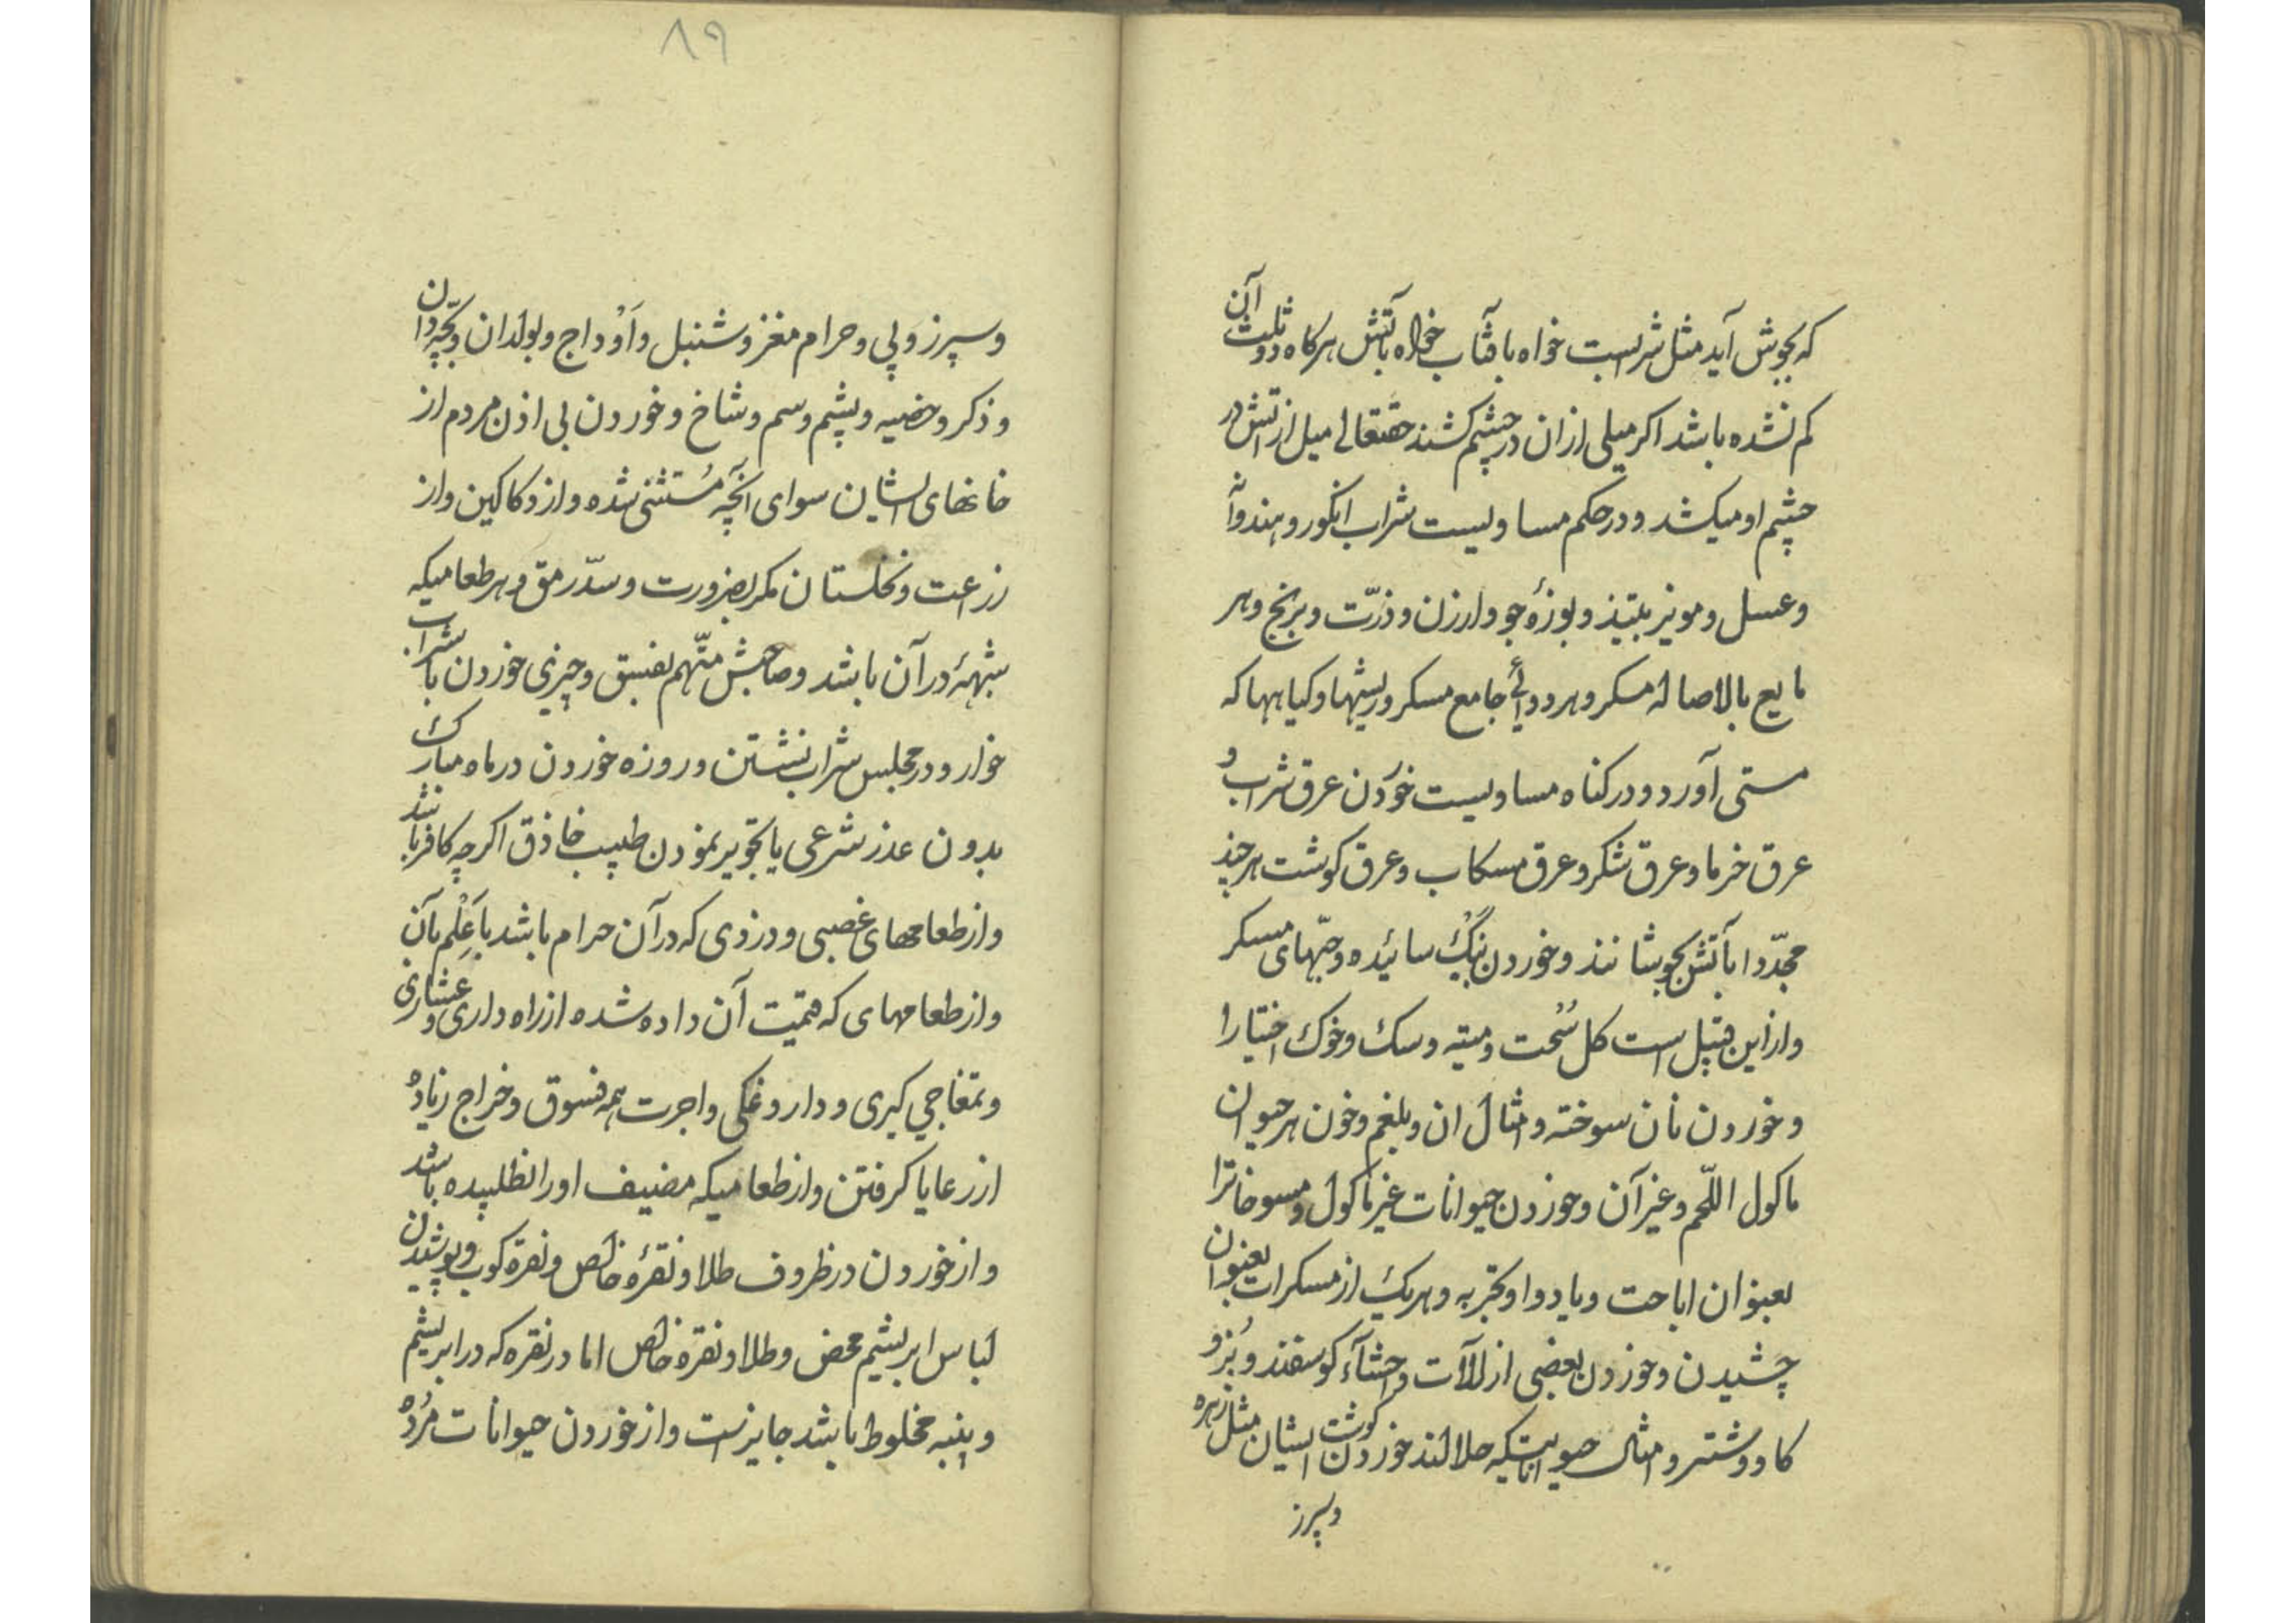 که بجوش آید مثل شربست خواه بافتاب خواه باتش هرکاه دو ثلث آن
کم نشده باشد اکر میلی ازان درچشم کشند حقتعالی میل ازاتش در
چشم او میکشد و درحکم مساویست شراب انکور و هندوانه
وعسل ومویز ونبیذ وبوزهٔ جو وارزن وذرّت وبرنج وهر
مایع بالاصاله مسکر و هر دوائی جامع مسکر وریشها وکیاهها که
مستی آورد و درکناه مساویست خوردن عرق شراب و
عرق خرما وعرق شکر وعرق مسکاب وعرق کوشت هرچند
مجدّدا باتش بجوشانند وخوردن بنک سائیده وحبّهای مسکر
وازاین قبیل است کل سُحت ومیته وسک وخوک اختیارا
وخوردن نان سوخته وامثال ان وبلغم وخون هرحیوان
ماکول اللّحم وغیرآن وخوردن حیوانات غیرماکول ومسوخاترا
بعنوان اباحت ویا دوا وتجربه وهریک ازمسکرات بعنوان
چشیدن وخوردن بعضی از آلات واحشآء کوسفند وبُز و
کاو وشتر وامثال حیواناتیکه حلالند خوردن کوشت ایشان مثل زهره
وسپرز
۸۹
وسپرز وپی وحرام مغز وشنبل واَوْداج وبولدان وبچّه‌دان
وذکر وخصیه وپشم وسم وشاخ وخوردن بی اذن مردم از
خانهای ایشان سوای آنچه مُستثنی شده وازدکاکین واز
زراعت ونخلستان مکر بضرورت وسدّ رمق وهرطعامیکه
شبههٔ درآن باشد وصاحبش متّهم بفسق وچیزی خوردن با شراب
خوار ودرمجلس شراب نشستن و روزه خوردن درماه مبارک
بدون عذر شرعی یا تجویز نمودن طبیب حاذق اکرچه کافر باشد
وازطعامهای غصبی ودزدی که درآن حرام باشد باعِلْم بآن
وازطعامهای که قیمت آن داده شده ازراه داری وعشاری
وتمغاچی کیری وداروغکی واجرت همه فسوق وخراج زیاده
ازرعایا کرفتن وازطعامیکه مضیف اورا نطلبیده باشد
وازخوردن درظروف طلا ونقرهٔ خالص ونقره کوب وپوشیدن
لباس ابریشم محض وطلا ونقره خالص اما درنقره که درابریشم
وپنبه مخلوط باشد جایزست وازخوردن حیوانات مُرده